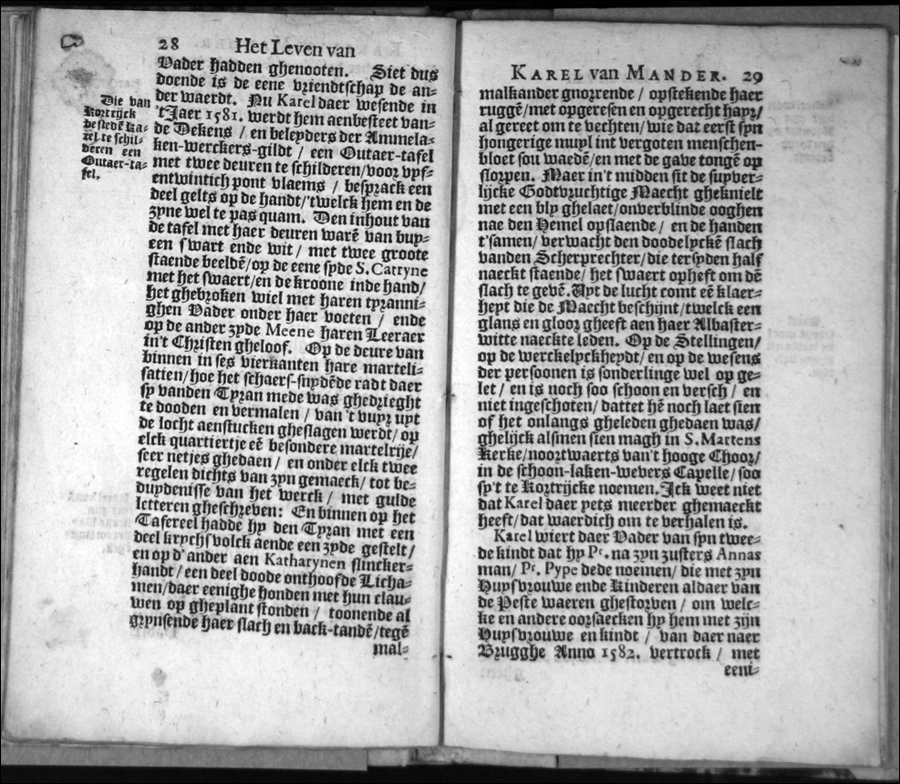 28 Het Leven van
Vader hadden ghenooten. Siet dus
doende is de eene vriendtschap de an-
der waerdt. Nu Karel daer wesende in
't Jaer 1581. werdt hem aenbesteet van-
de Dekens / en beleyders der Ammela-
ken-werckers-gildt / een Outaer-tafel
met twee deuren te schilderen/voor vyf-
entwintich pont vlaems / besprack een
deel gelts op de handt/'twelck hem en de
zyne wel te pas quam. Den inhout van
de tafel met haer deuren warē van buy-
ten swart ende wit / met twee groote
staende beeldē/op de eene syde S. Catryne
met het swaert/en de kroone inde hand/
het ghebroken wiel met haren tyranni-
ghen Vader onder haer voeten / ende
op de ander zyde Meene haren Leeraer
in't Christen gheloof. Op de deure van
binnen in ses vierkanten hare marteli-
satien/hoe het schaers-snydēde radt daer
sy vanden Tyran mede was ghedrieght
te dooden en vermalen / van 't vuyr uyt
de locht aenstucken gheslagen werdt/op
elck quartiertje eē besondere martelrije/
seer netjes ghedaen / en onder elck twee
regelen dichts van zyn gemaeck/ tot be-
duydenisse van het werck / met gulde
letteren gheschreven: En binnen op het
Tafereel hadde hy den Tyran met een
deel krychsvolck aende een zyde gestelt/
en op d'ander aen Katharynen slincker-
handt / een deel doode onthoofde Licha-
men/daer eenighe honden met hun clau-
wen op gheplant stonden / toonende al
grynsende haer slach en back-tandē/tegē
mal-
Die van
Kortrijck
bestedē Ka-
rel te schil-
deren een
Outaer-ta-
fel.
KAREL van MANDER. 29
malkander gnorrende / opstekende haer
ruggē/met opgeresen en opgerecht hayr/
al gereet om te vechten/wie dat eerst syn
hongerige muyl int vergoten menschen-
bloet sou waedē/en met de gave tongē op
slorpen. Maer in't midden sit de suyver-
lijcke Godtvruchtige Maecht gheknielt
met een bly ghelaet/onverblinde ooghen
nae den Hemel opslaende / en de handen
t'samen/ verwacht den doodelyckē slach
vanden Scherprechter/die tersyden half
naeckt staende/ het swaert opheft om dē
slach te gevē. Uyt de lucht comt eē klaer-
heyt die de Maecht beschijnt/twelck een
glans en gloor gheeft aen haer Albaster-
witte naeckte leden. Op de Stellingen/
op de werckelyckheydt/ en op de wesens
der persoonen is sonderlinge wel op ge-
let / en is noch soo schoon en versch / en
niet ingeschoten/ dattet hē noch laet sien
of het onlangs gheleden ghedaen was/
ghelijck alsmen sien magh in S. Martens
Kerke/noortwaerts van't hooge Choor/
in de schoon-laken-wevers Capelle/ soo
sy't te Kortrijcke noemen. Ick weet niet
dat Karel daer yets meerder ghemaeckt
heeft/dat waerdich om te verhalen is.
Karel wiert daer Vader van syn twee-
de kindt dat hy Pr. na zyn zusters Annas
man/ Pr. Pype dede noemen/ die met zyn
Huysvrouwe ende Kinderen aldaer van
de Peste waeren ghestorven / om welc-
ke en andere oorsaecken hy hem met zijn
Huysvrouwe en kindt / van daer naer
Brugghe Anno 1582. vertrock / met
eeni-